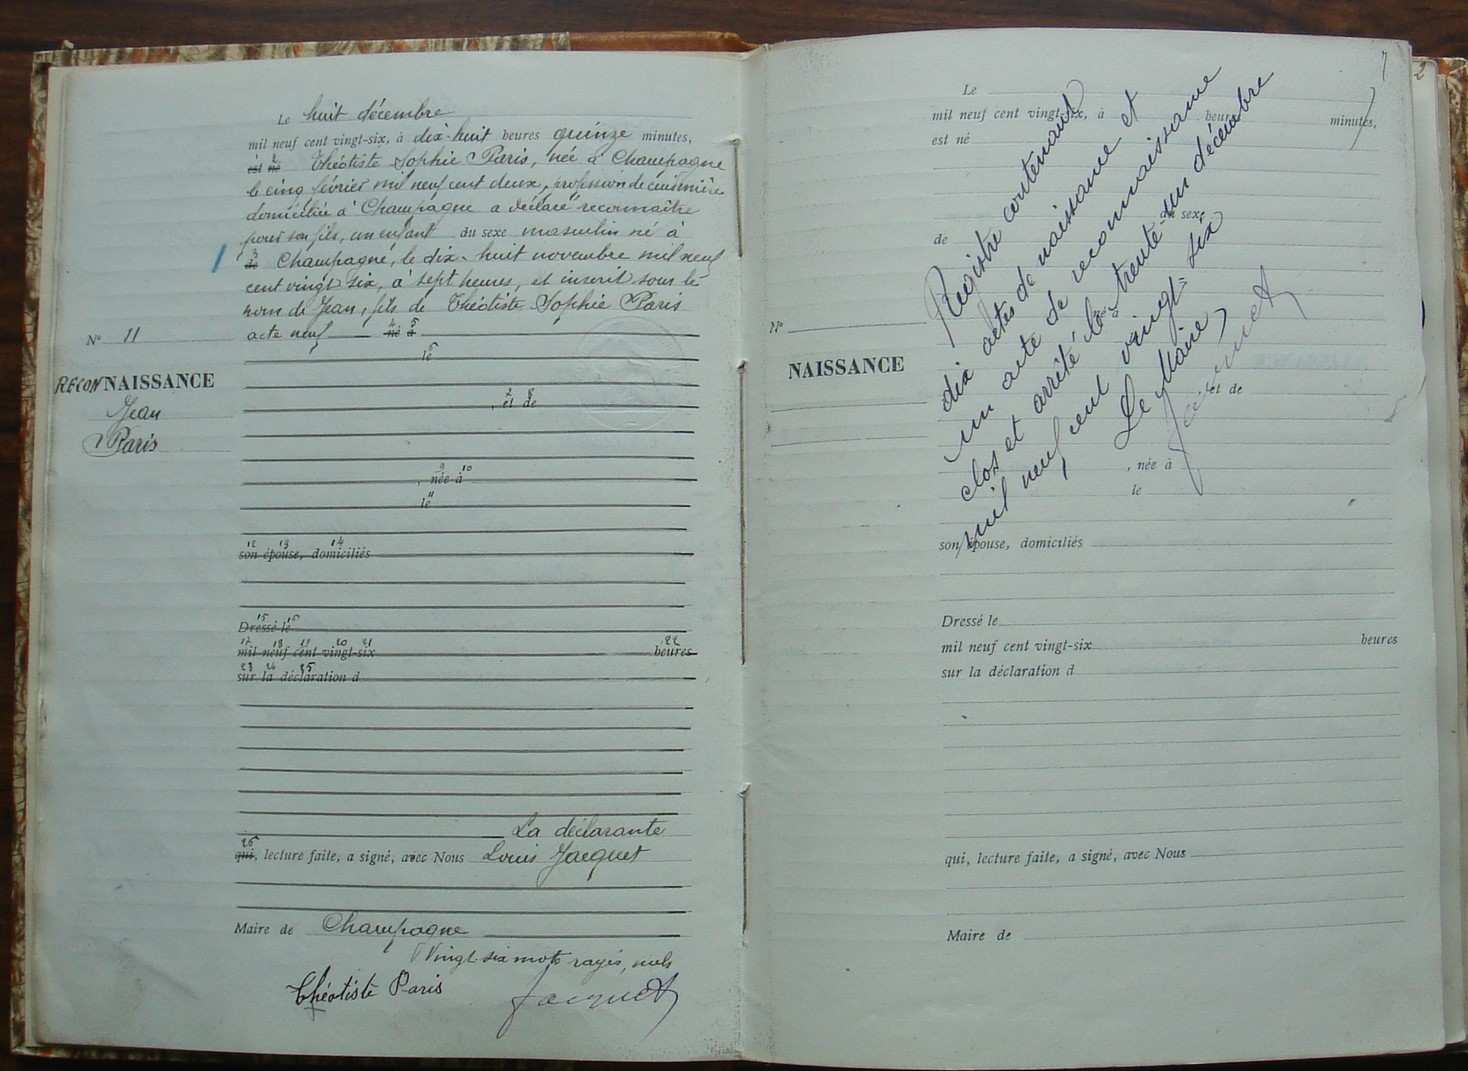 Le huit décembre
mil neuf cent vingt-six, à dix-huit heures quinze minutes,
est né Théotiste Sophie Paris, née à Champagne
le cinq février mil neuf cent deux, profession de cuisinière
domiciliée à Champagne a déclaré reconnaître
pour son fils, un enfant du sexe masculin né à
de Champagne, le dix-huit novembre mil neuf
cent vingt six, à sept heures, et inscrit sous le
nom de Jean, fils de Théotiste Sophie Paris
acte neuf né à
N° 11
le
RECONNAISSANCE
Jean
Paris
, et de
, née à
le
son épouse, domiciliés
Dressé le
mil neuf cent vingt-six heures
sur la déclaration d
La déclarante
qui, lecture faite, a signé, avec Nous Louis Jacquet
Maire de Champagne
Vingt six mots rayés, nuls
Théotiste Paris
Jacquet
7
2
Le
mil neuf cent vingt-six, à heures minutes,
est né
du sexe
de
N°
NAISSANCE
et de
, née à
le
son épouse, domiciliés
Dressé le
mil neuf cent vingt-six heures
sur la déclaration d
qui, lecture faite, a signé, avec Nous
Maire de
Registre contenant
dix actes de naissance et
un acte de reconnaissance
clos et arrêté le trente-un décembre
mil neuf cent vingt-six
Le Maire,
Jacquet